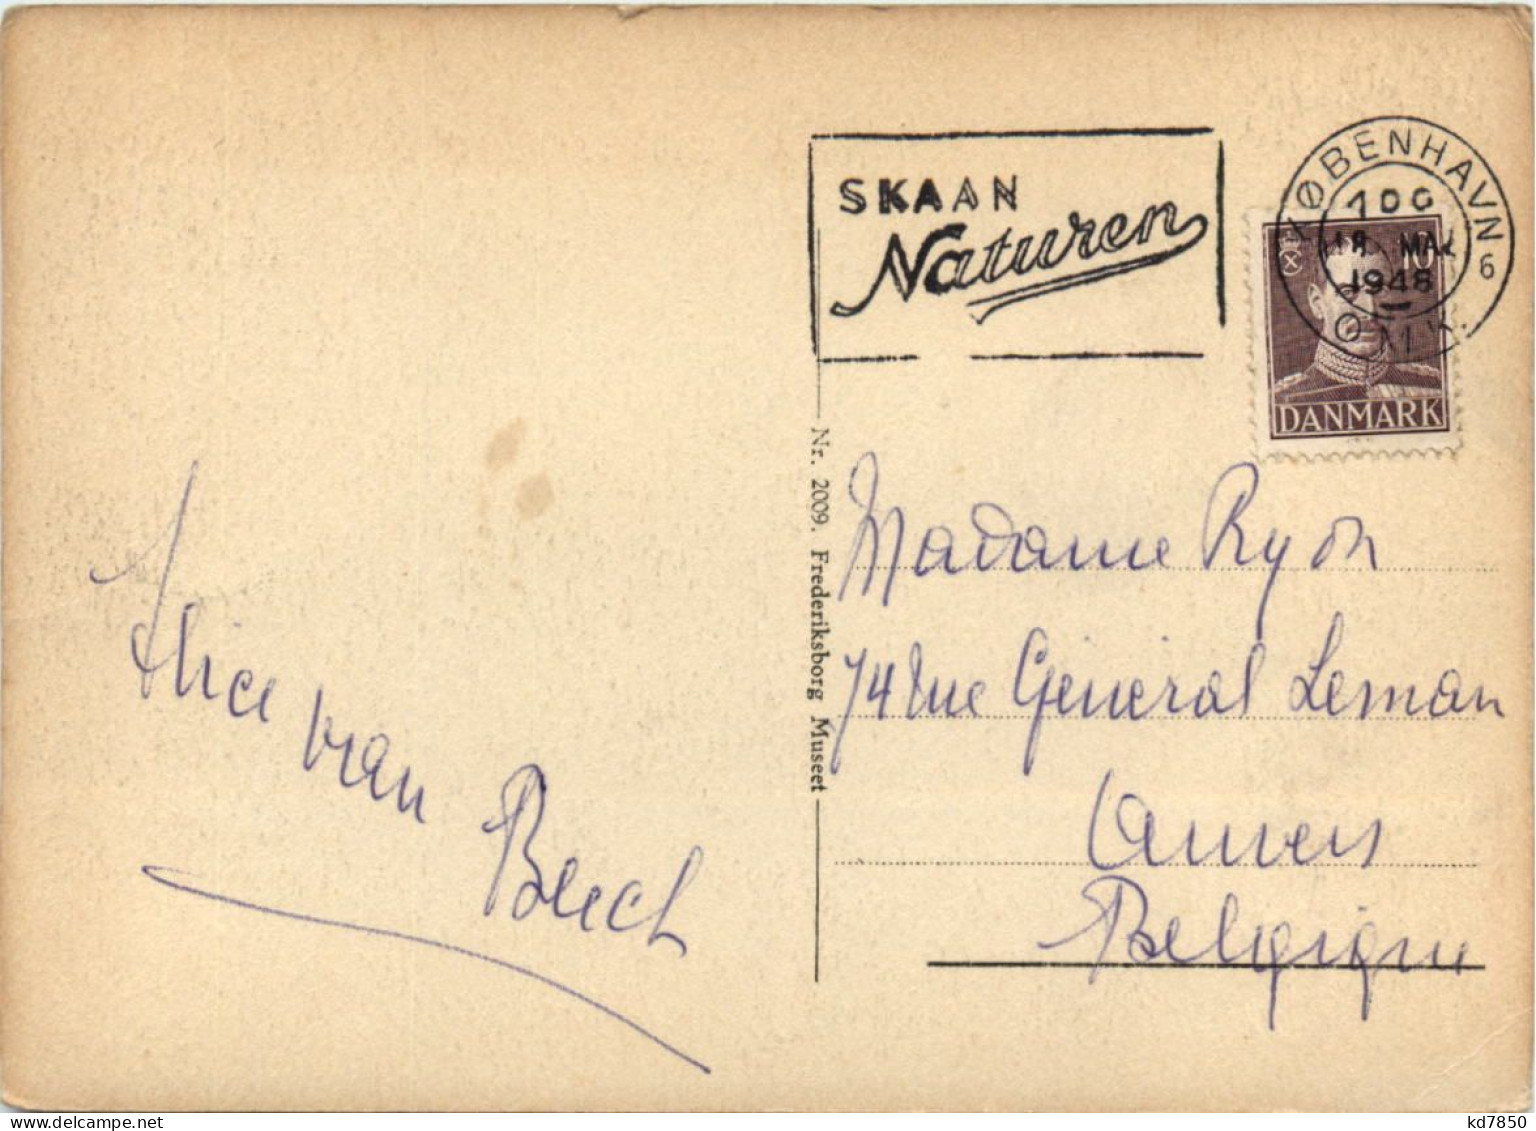 SKAAN
Naturen
KØBENHAVN
6
18. MAJ
1948
OMK.
10
DANMARK
Nr. 2009. Frederiksborg Museet
Madame Ryon
74 Rue Général Leman
Anvers
Belgique
Alice van
kd7850